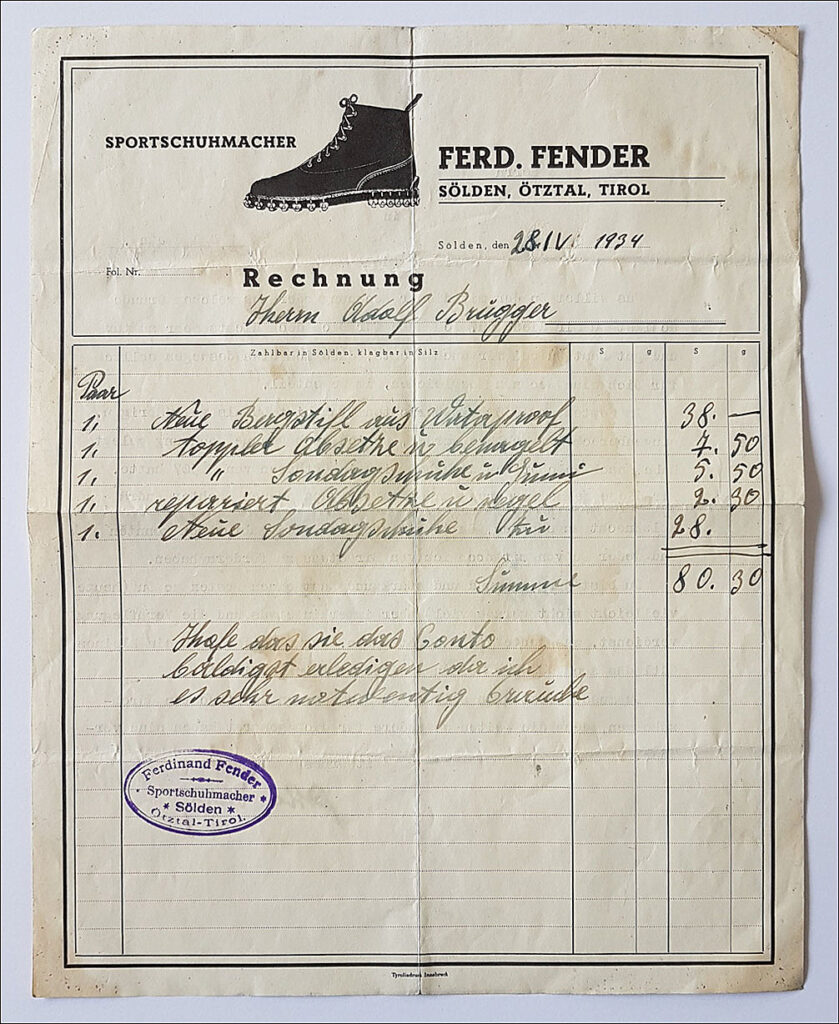 SPORTSCHUHMACHER
FERD. FENDER
SÖLDEN, ÖTZTAL, TIROL
Sölden, den 28. IV. 1934
Fol. Nr.
Rechnung
Herrn Adolf Brugger
Zahlbar in Sölden, klagbar in Silz S g S g
Paar
1. Neue Bergstifl aus Wataproof 38. —
1. toppler Absetze u benagelt 7. 50
1. " Sondagschuhe u Gumi 5. 50
1. repariert Absetze u negel 2. 30
1. Neue Sondagschuhe 28.
Summe 80. 30
Ihofe das sie das Conto
baldigst erledigen da ich
es sehr notwentig brauche
Ferdinand Fender
Sportschuhmacher
* Sölden *
Ötztal-Tirol.
Tyroliadruck Innsbruck